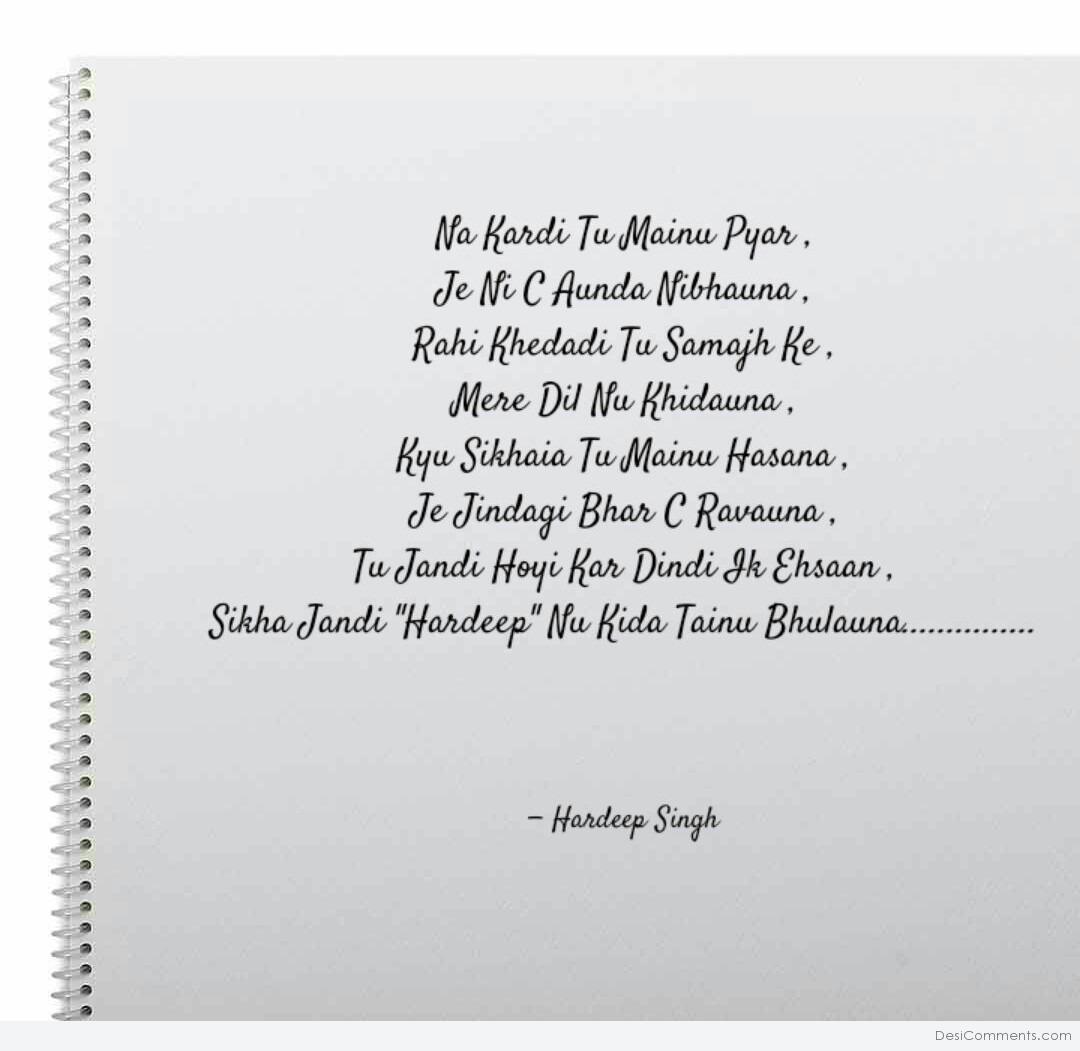 Na Kardi Tu Mainu Pyar ,
Je Ni C Aunda Nibhauna ,
Rahi Khedadi Tu Samajh Ke ,
Mere Dil Nu Khidauna ,
Kyu Sikhaia Tu Mainu Hasana ,
Je Jindagi Bhar C Ravauna ,
Tu Jandi Hoyi Kar Dindi Ik Ehsaan ,
Sikha Jandi "Hardeep" Nu Kida Tainu Bhulauna...............
– Hardeep Singh
DesiComments.com